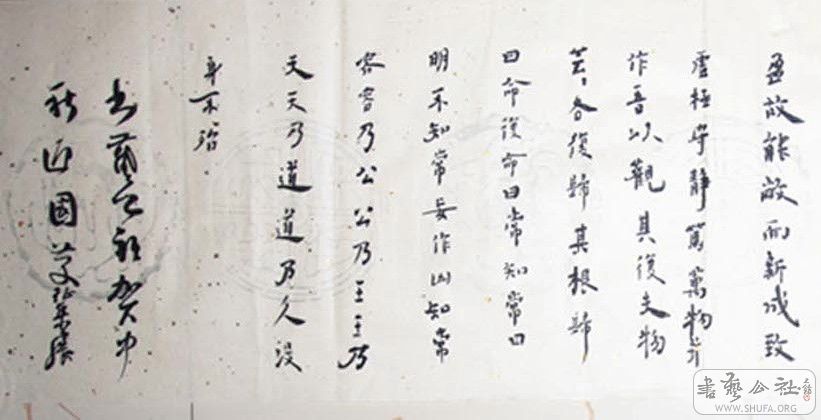 盈故能敝而新成致
虚極守靜篤萬物并
作吾以觀其復夫物
芸〻各復歸其根歸
曰命復命曰常知常曰
明不知常妄作凶知常
容容乃公公乃王王乃
天天乃道道乃久沒
身不殆
祝賀中
秋迎國慶
書藝公社
WWW.SHUFA.ORG